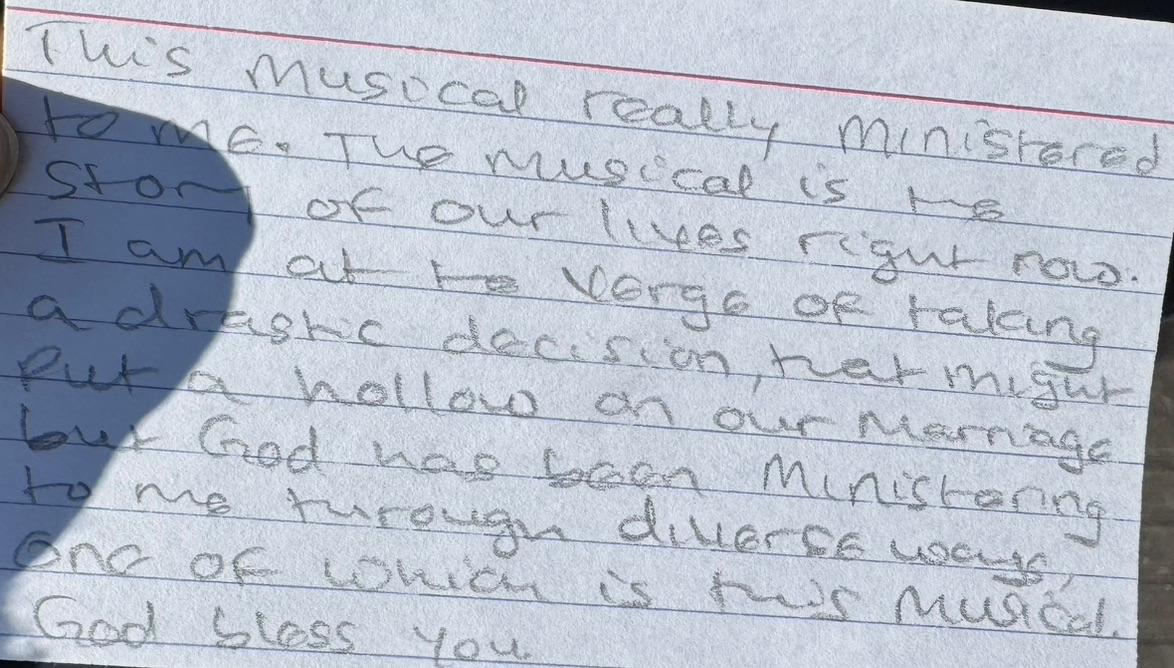 This Musical really Ministered
to me. The Musical is the
Story of our lives right now.
I am at the Verge of taking
a drastic decision, that might
Put a hollow on our Marriage
but God has been Ministering
to me through diverse ways,
one of which is this Musical.
God bless you